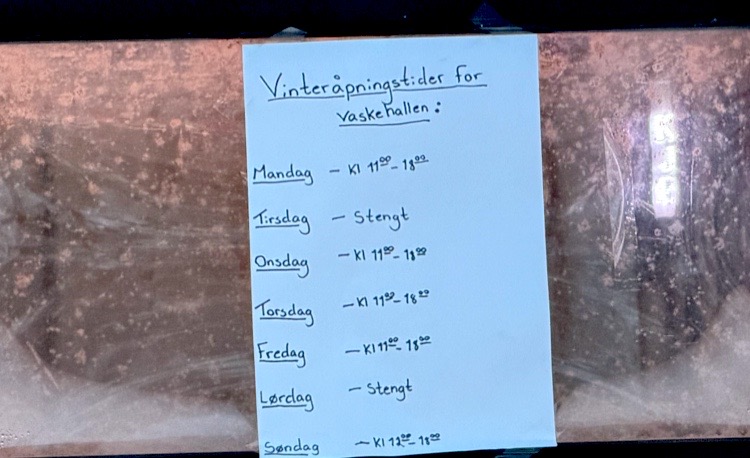 Vinteråpningstider for
vaskehallen:
Mandag – Kl 11⁰⁰ – 18⁰⁰
Tirsdag – Stengt
Onsdag – Kl 11⁰⁰ – 18⁰⁰
Torsdag – Kl 11⁰⁰ – 18⁰⁰
Fredag – Kl 11⁰⁰ – 18⁰⁰
Lørdag – Stengt
Søndag – Kl 12⁰⁰ – 18⁰⁰